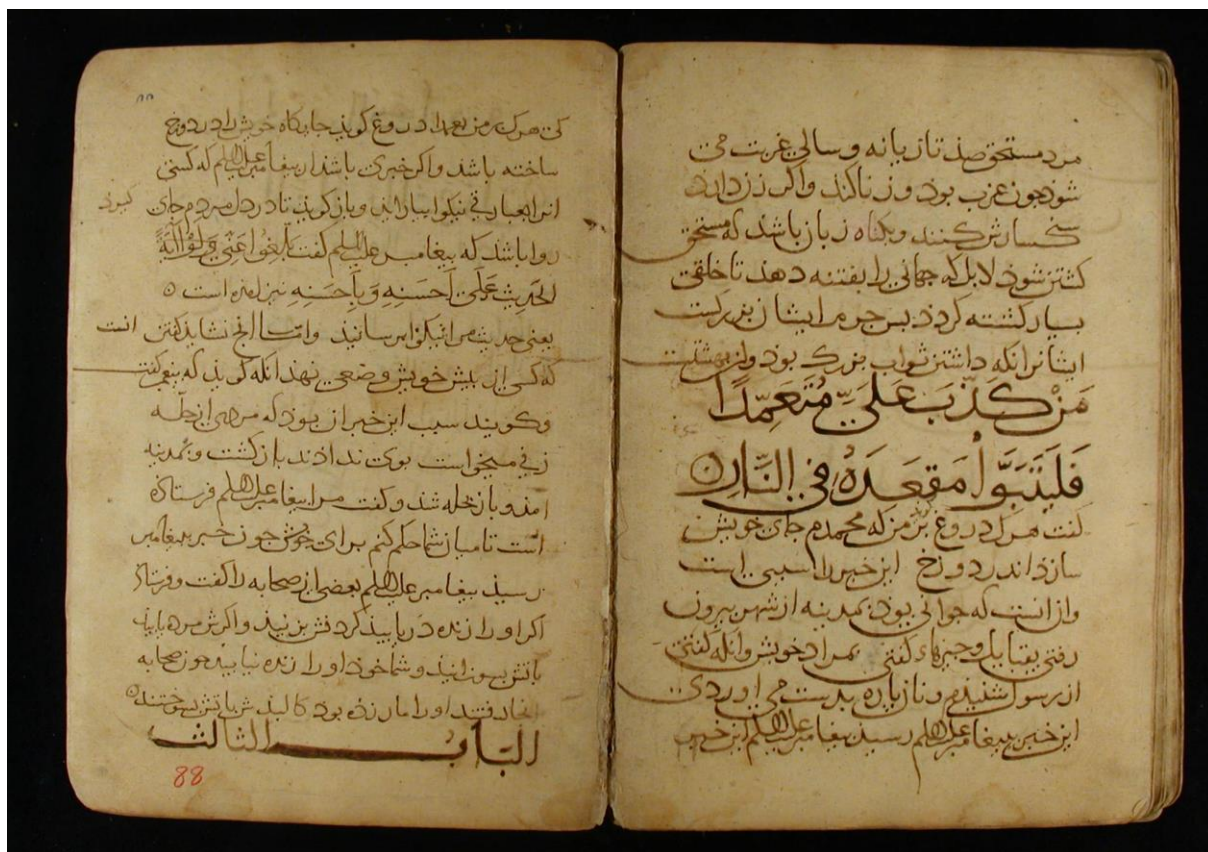 مرد مستحق صد تازیانه و سالی غربت می
شود جون عزب بود و زنا کند واکر زن دارد
سنکسارش کنند و بکناه زبان باشد که مستحق
کشتن شود لا بل که جهانی را بفتنه دهد تا خلقی
بسیار کشته کردد بس جرم ایشان بزرکست
ایشانرا نکه داشتن ثواب بزرک بود و از بهشتست
مَنْ كَذَّبَ عَلَيَّ مُتَعَمِّدًا
فَلْيَتَبَوَّأْ مَقْعَدَهُ فِي النَّارِ
کفت هرک دروغ بر من که محمدم جای خویش
سازد اندر دوزخ این خبر را سببی است
وان انست که جوانی بود بمدینه از شهر بیرون
رفتی بقبایل و جیزهاء کفتی بمراد خویش وانکه کفتی
از رسول شنیدم و نان باره بدست می اوردی
این خبر ببیغامبر علیه السلم رسید بیغامبر علیه السلم این خبر
کی هرک بر من بعمدا دروغ کوید جایکاه خویش را در دوزخ
ساخته باشد واکر خبری باشد از بیغامبر علیه السلم که کسی
انرا بعبارتی نیکو بیاراید و باز کوید تا در دل مردم جای کیرد
روا باشد که بیغامبر علیه السلم کفت بَلِّغُوا عَنِّي وَلَوْ آيَةً
الحَدِيثَ عَلَى أَحْسَنِهِ وَبِأَحْسَنِهِ نیز امده است
یعنی حدیث من بنیکوی برسانید واما انج نشاید کفتن انست
که کسی از بیش خویش وضعی نهد انکه کوید که بیغمبر کفت
و کویند سبب این خبر ان بود که مردی از حله
زنی میخواست بوی ندادند باز کشت و بمدینه
امد و باز حله شد و کفت مرا بیغامبر علیه السلم فرستاده
است تا میان شما حکم کنم برای خویش جون خبر ببیغامبر
رسید بیغامبر علیه السلم بعضی از صحابه را کفت و فرستاد
اکر او را زنده دریابید کردنش بزنید واکرش مرده یابید
باتش بسوزانید و شما خود او را زنده نیابید جون صحابه
انجا رفتند او را مار زده بود کالبدش باتش بسوختند
الباب الثالث
88